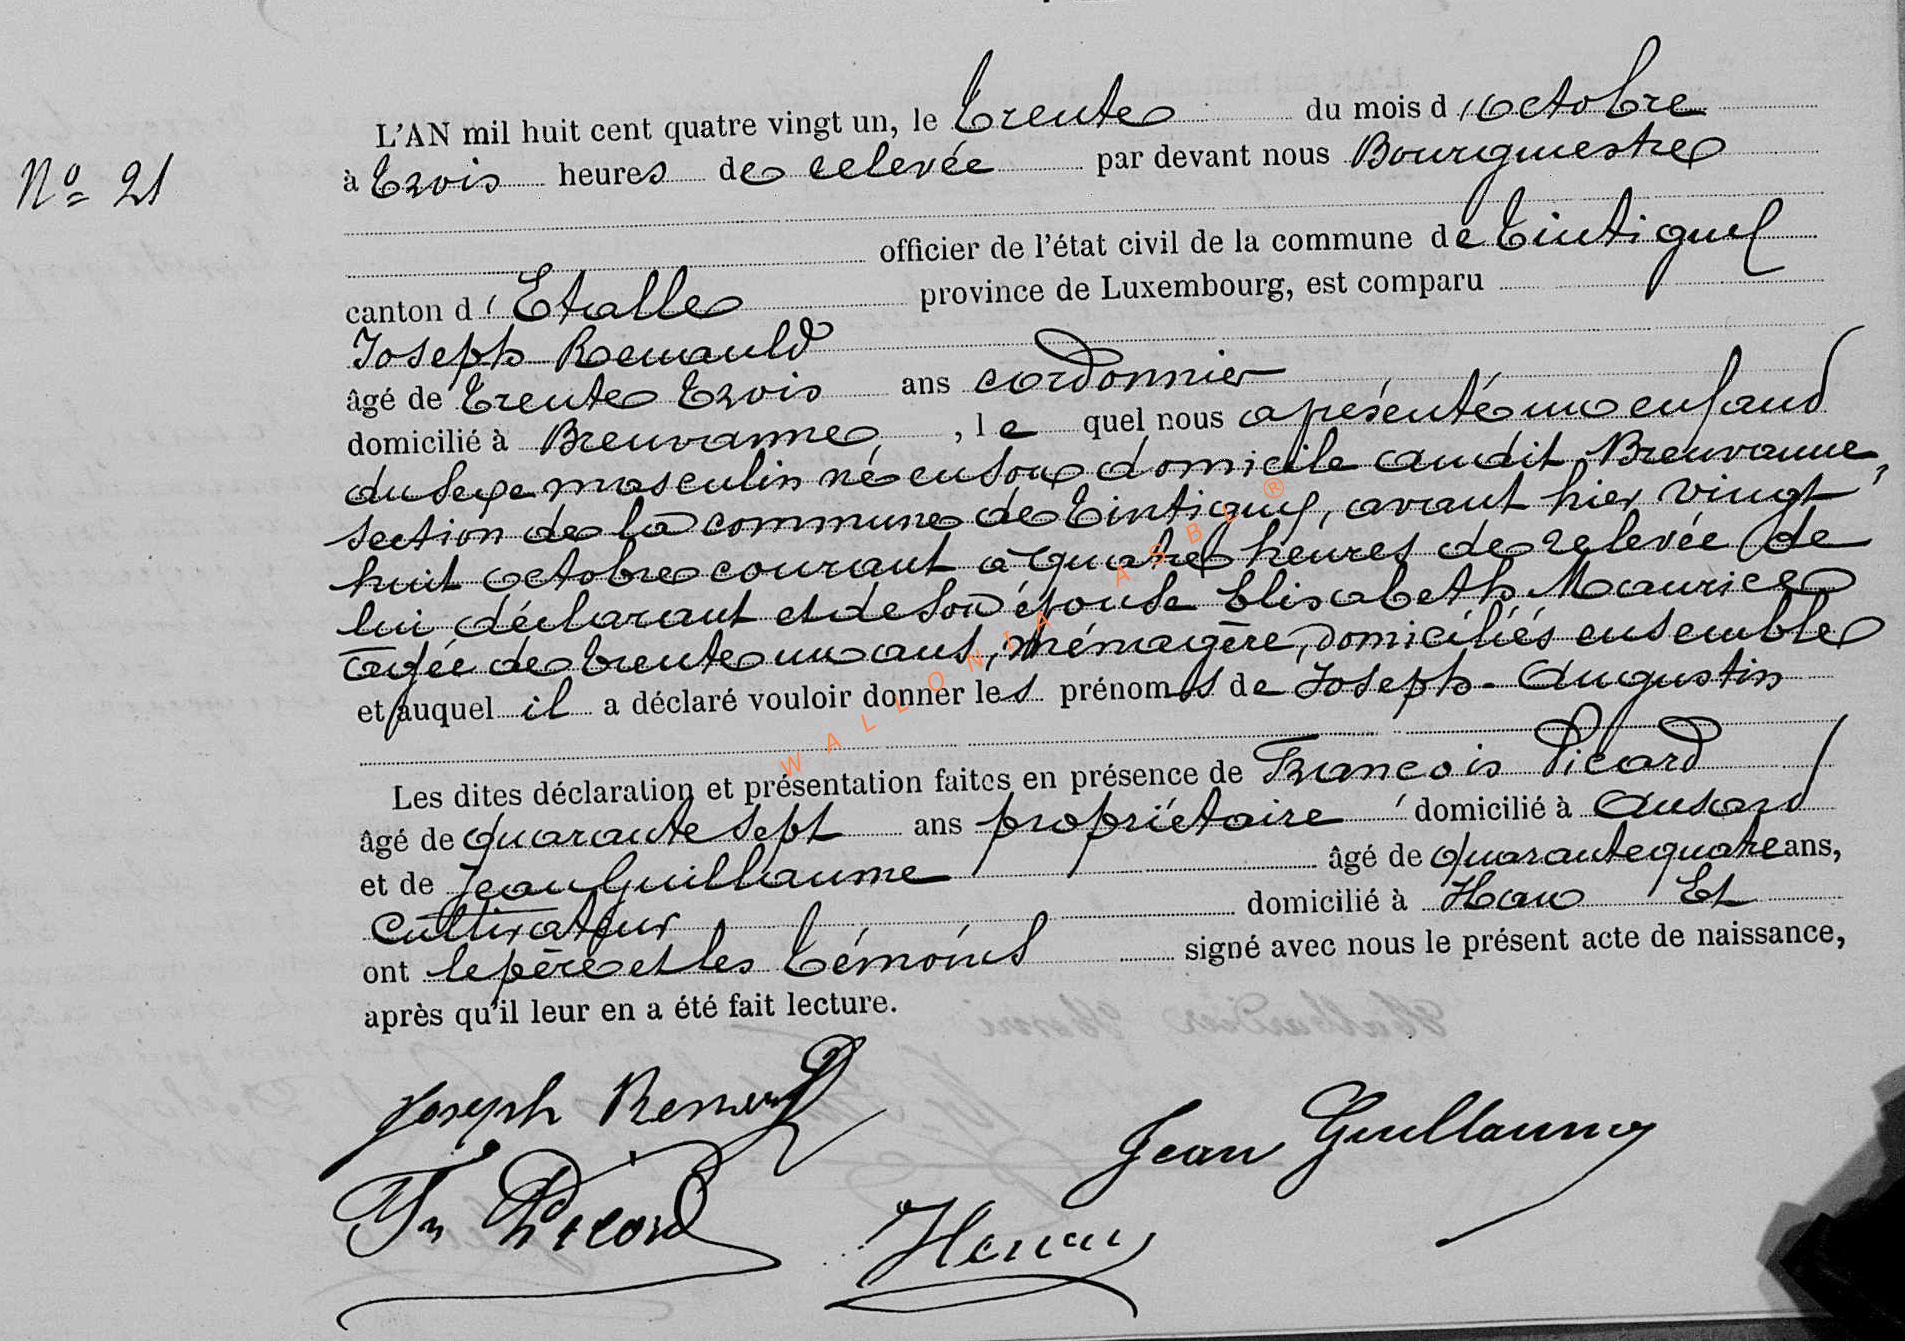 L'AN mil huit cent quatre vingt un, le trente du mois d'octobre
No 21
à trois heures de relevée par devant nous Bourgmestre
officier de l'état civil de la commune de Tintigny
canton d'Etalle province de Luxembourg, est comparu
Joseph Renauld
âgé de trente trois ans cordonnier
domicilié à Breuvanne, le quel nous a présenté un enfand
du sexe masculin né en son domicile audit Breuvanne,
section de la commune de Tintigny, avant hier vingt
huit octobre courant à quatre heures de relevée de
lui déclarant et de son épouse Elisabeth Maurice
agée de trente un ans, ménagère, domiciliés ensemble
et auquel il a déclaré vouloir donner les prénoms de Joseph-Augustin
Les dites déclaration et présentation faites en présence de François Picard
âgé de quarante sept ans propriétaire domicilié à Ansard
et de Jean Guillaume âgé de quarante quatre ans,
cultivateur domicilié à Han Et
ont le père et les témoins signé avec nous le présent acte de naissance,
après qu'il leur en a été fait lecture.
Joseph Renauld
Jean Guillaume
Fs Picard
WALLONIA ASBL ®